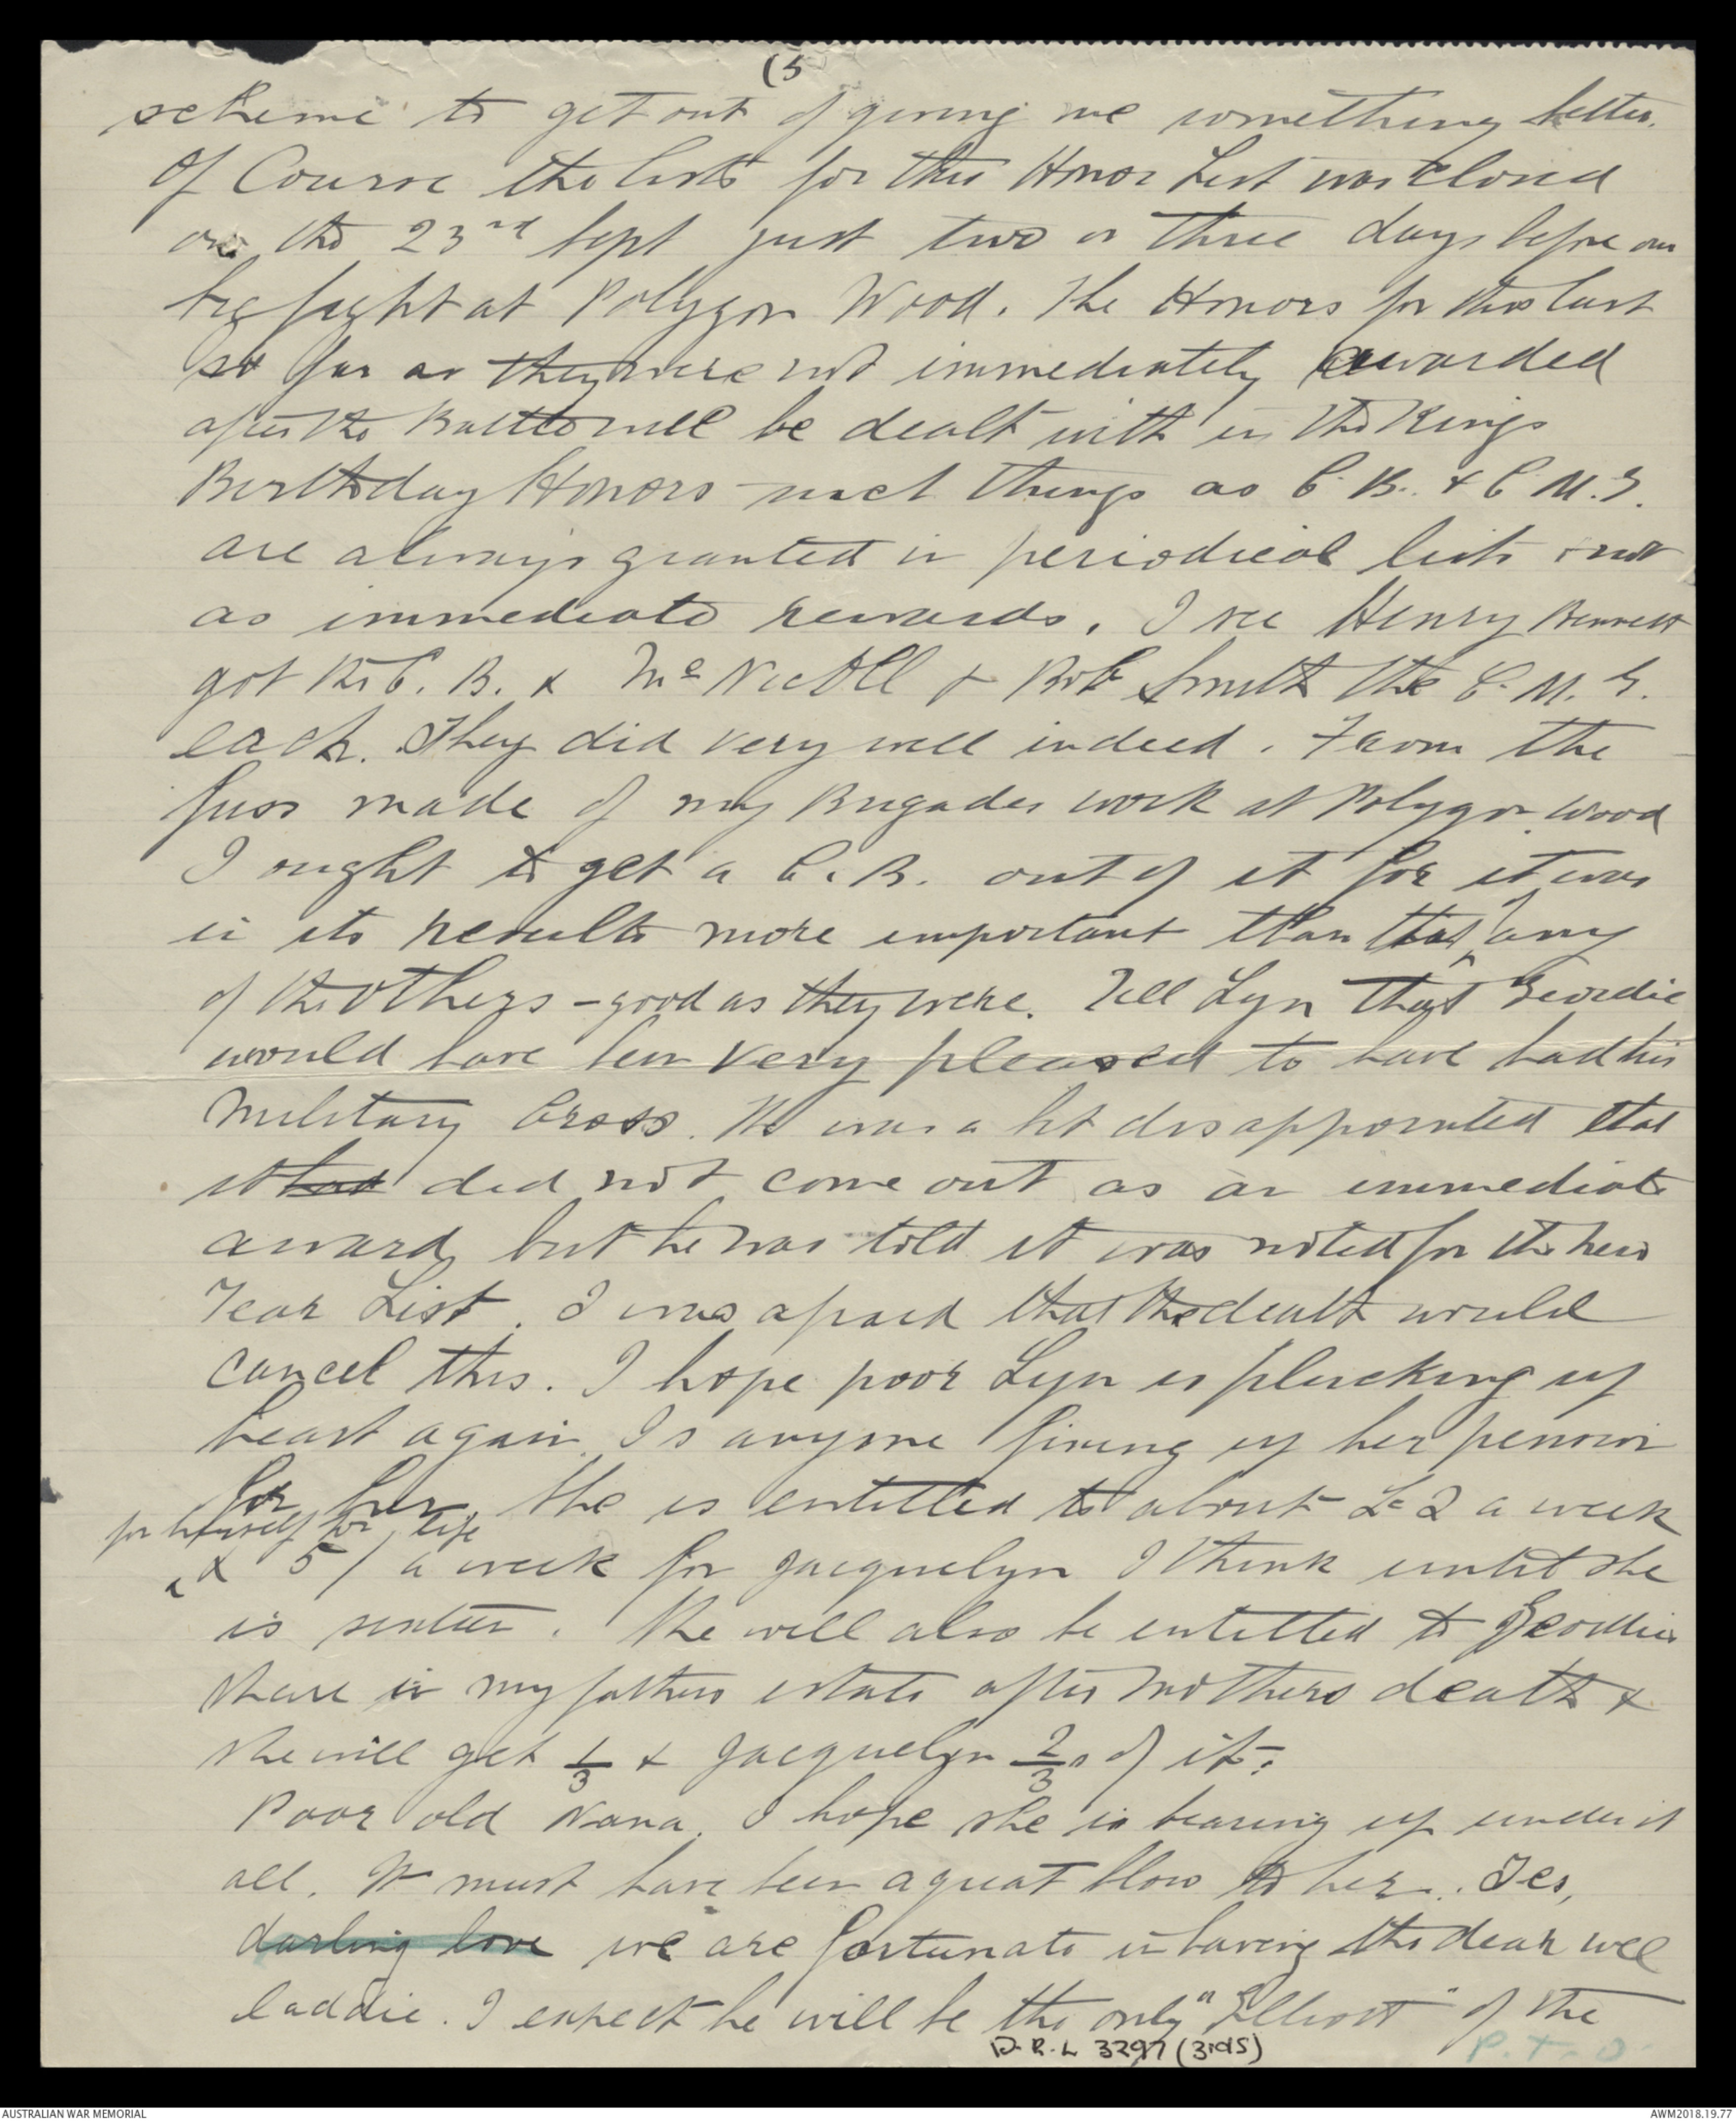 (5
scheme to get out of giving me something better.
Of Course the lists for this Honor List was closed
on the 23rd Sept just two or three days before our
big fight at Polygon Wood. The Honors for this last
so far as they were not immediately awarded
after the Battle will be dealt with in the Kings
Birthday Honors such things as C.B. & C.M.G.
are always granted in periodical lists & not
as immediate rewards. I see Henry Bennett
got the C.B. & McNicoll & Bob Smith the C.M.G.
each. They did very well indeed. From the
fuss made of my Brigades work at Polygon Wood
I ought to get a C.B. out of it for it was
in its results more important than that any
of the others - good as they were. Tell Lyn that Geordie
would have been very pleased to have had his
Military Cross. He was a bit disappointed that
it had did not come out as an immediate
award, but he was told it was noted for the New
Year List. I was afraid that the death would
cancel this. I hope poor Lyn is plucking up
heart again. Is anyone fixing up her pension
for her. She is entitled to about £2 a week
for herself for life
& 5/ a week for Jacquelyn I think until she
is sixteen. She will also be entitled to Geordies
share in my fathers estate after Mothers death &
she will get 1/3 & Jacquelyn 2/3s of it.
Poor old Nana. I hope she is bearing up under it
all. It must have been a great blow to her. Yes,
darling love we are fortunate in having the dear wee
laddie. I expect he will be the only "Elliott" of the
D.R.L 3297 (3rdS)
P.T.O
AUSTRALIAN WAR MEMORIAL
AWM2018.19.77